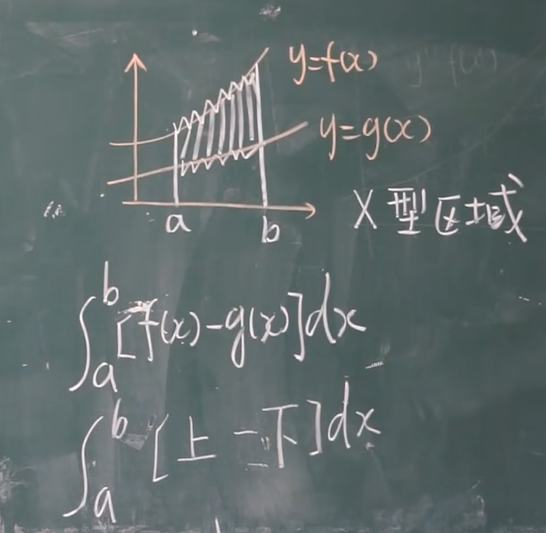 y=f(x)
y=g(x)
a
b
X型区域
∫_a^b [f(x)-g(x)]dx
∫_a^b [上-下]dx